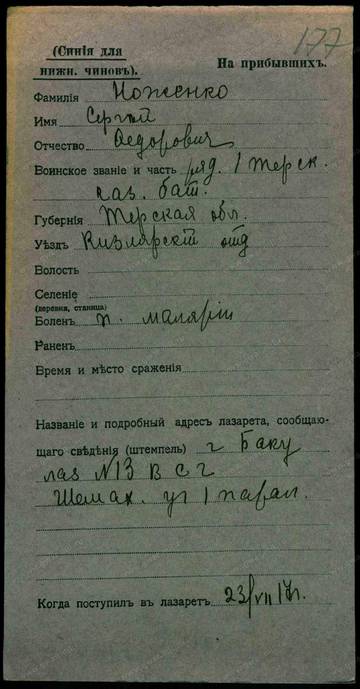 177
(Синія для
нижн. чиновъ).
На прибывшихъ.
Фамилія Ноженко
Имя Сергѣй
Отчество Федоровичъ
Воинское званіе и часть ряд. 1 терск.
каз. бат.
Губернія Терская обл.
Уѣздъ Кизлярскій отд
Волость
Селеніе
(деревня, станица)
Боленъ п. маляріи
Раненъ
Время и мѣсто сраженія
Названіе и подробный адресъ лазарета, сообщаю-
щаго свѣдѣнія (штемпель) г Баку
лаз N13 В С Г
Шемах. уг 1 парал.
Когда поступилъ въ лазаретъ 23/VII 17г.